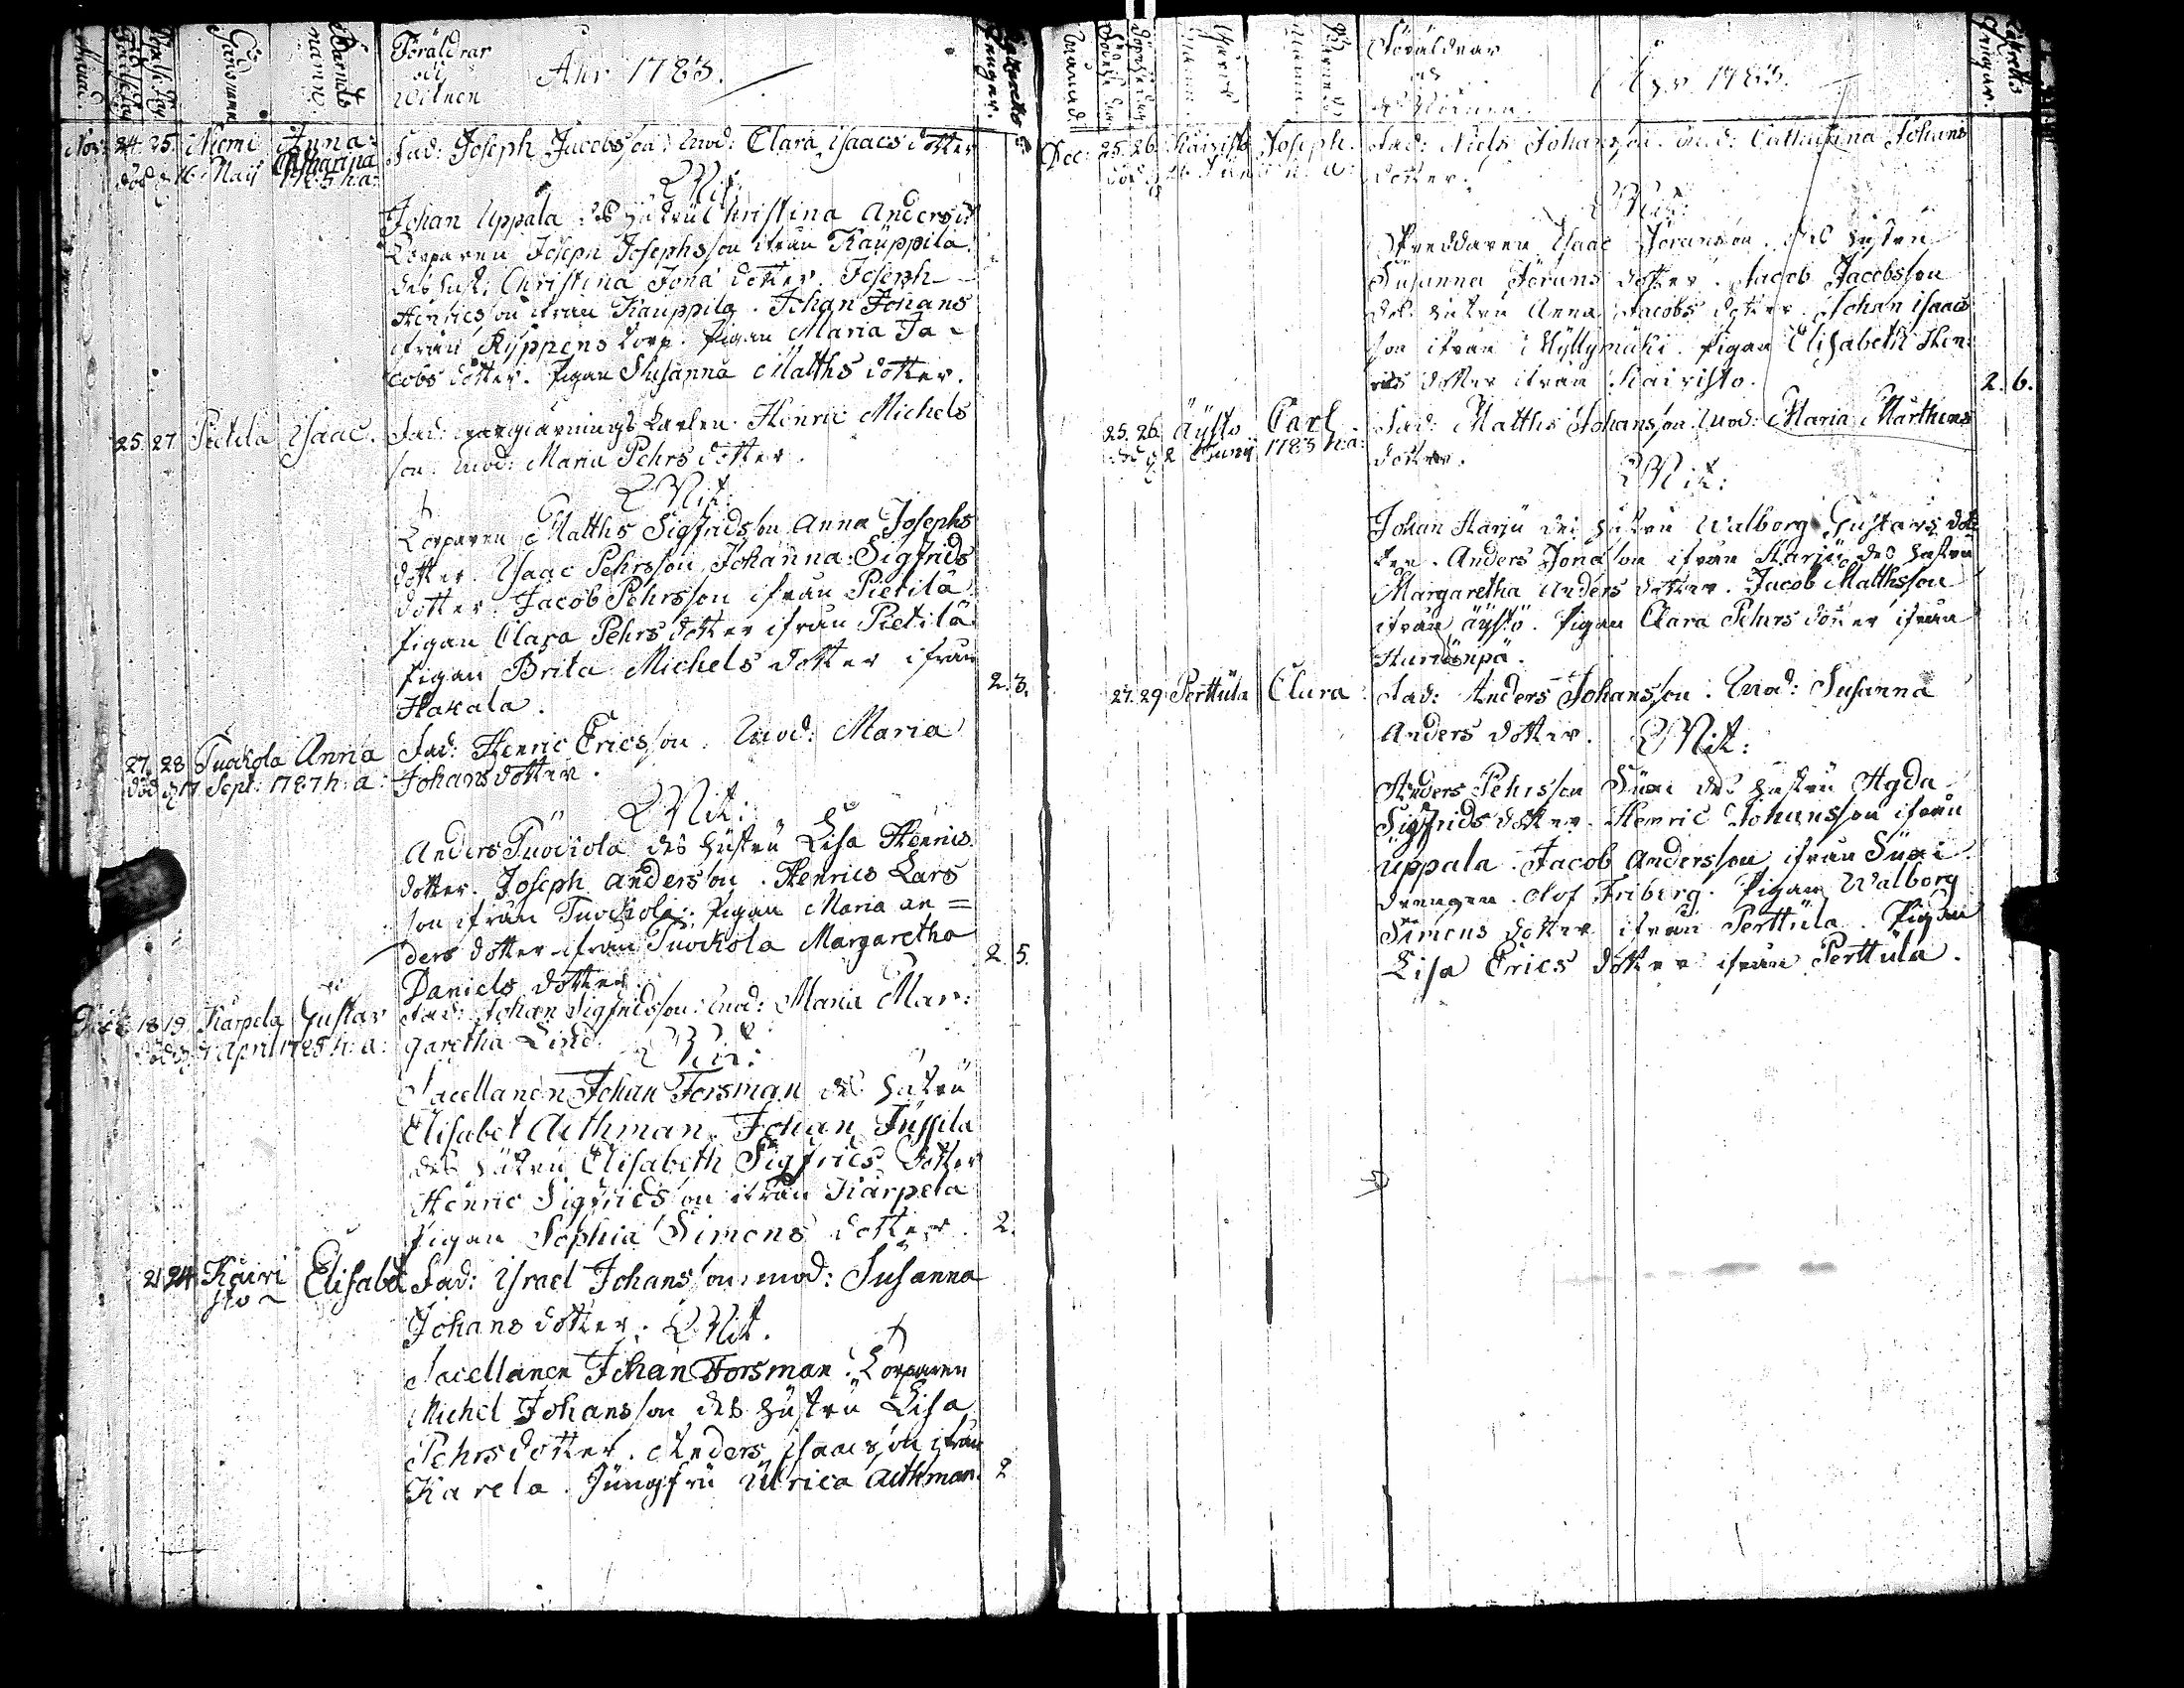 Månad. Födelse Dag Döpelse Dag Gårdnamn Barnets namn. Föräldrar och Witnen Ahr 1783.
Nov: 24. 25. Niemi Anna Catharina Fad: Joseph Jacobsson. Mod: Clara Isaacs dotter
död d 16 Maij 1785 h.a:
Wit:
Johan Uppala des hustru Christina Anders d
Torparen Joseph Josephsson ifrån Kauppila
des hust: Christina Jona dotter. Joseph
Henricsson ifrån Kauppila. Johan Johans
ifrån Ryppens torp. Pigan Maria Ja-
cobs dotter. Pigan Susanna Matths dotter.
25. 27 Pietila Isaac. Fad: Henric Michels
son. Mod: Maria Pehrs dotter.
Wit:
Torparen Matths Sigfridsson Anna Josephs
dotter. Isaac Pehrsson Johanna Sigfrids
dotter. Jacob Pehrsson ifrån Pietila
Pigan Clara Pehrs dotter ifrån Pietilä
Pigan Brita Michels dotter ifrån
Hakala. 2. 3.
27. 28 Tuockola Anna Fad: Henric Ericsson. Mod: Maria
död d 17 Sept: 1787 h: a: Johans dotter.
Wit:
Anders Tuockola des hustru Lisa Henrics
dotter. Joseph Andersson. Henrics Lars
son ifrån Tuockola. Pigan Maria An=
ders dotter ifrån Tuockola Margaretha 2. 5.
Daniels dotter.
Dec: 18. 19 Karpela Gustav Fad: Johan Sigfridsson. Mod: Maria Mar:
April 1785 h: a: garetha Lind.
Wit:
Sacellanen Johan Forsman des hustru
Elisabet Aethman. Johan Jussila
des hustru Elisabeth Sigfrids dotter
Henric Sigfridsson ifrån Karpela
Pigan Sophia Simons dotter. 2.
21 24 Kairi Elisabet Fad: Israel Johansson. mod: Susanna
sto Johans dotter. Wit.
Sacellanen Johan Forsman. Torparen
Michel Johansson des hustru Lisa
Pehrs dotter. Anders Isaacsson ifrån
Karela. Jungfru Ulrica Aethman. 2
Föräldrar och Witnen Ahr 1783.
Dec: 25. 26. Kairisto Joseph. Fad: Niels Johansson. Mod: Catharina Johans
dotter.
Wit:
Isaac Joransson. des hustru
Susanna Jorans dotter. Jacob Jacobsson
des hustru Anna Jacobs dotter. Johan Isaacs
son ifrån Myllymäki. Pigan Elisabeth Hen:
rics dotter ifrån Kairisto. 2. 6.
25. 26. Äysto Carl Fad: Matths Johansson. Mod: Maria Marthens
1785 h.a: dotter.
Wit:
Johan Harju des hustru Walborg Gustavs dot
ter. Anders Jonasson ifrån Harju des hustru
Margaretha Anders dotter. Jacob Matthsson
ifrån Äystö. Pigan Clara Pehrs dotter ifrån
27. 29 Perttula Clara Fad: Anders Johansson. Mod: Susanna
Anders dotter. Wit:
Anders Pehrsson des hustru Agda
Sigfrids dotter. Henric Johansson ifrån
Uppala. Jacob Andersson ifrån
drengen Olof Friberg. Pigan Walborg
Simons dotter ifrån Perttula. Pigan
Lisa Erics dotter ifrån Perttula.